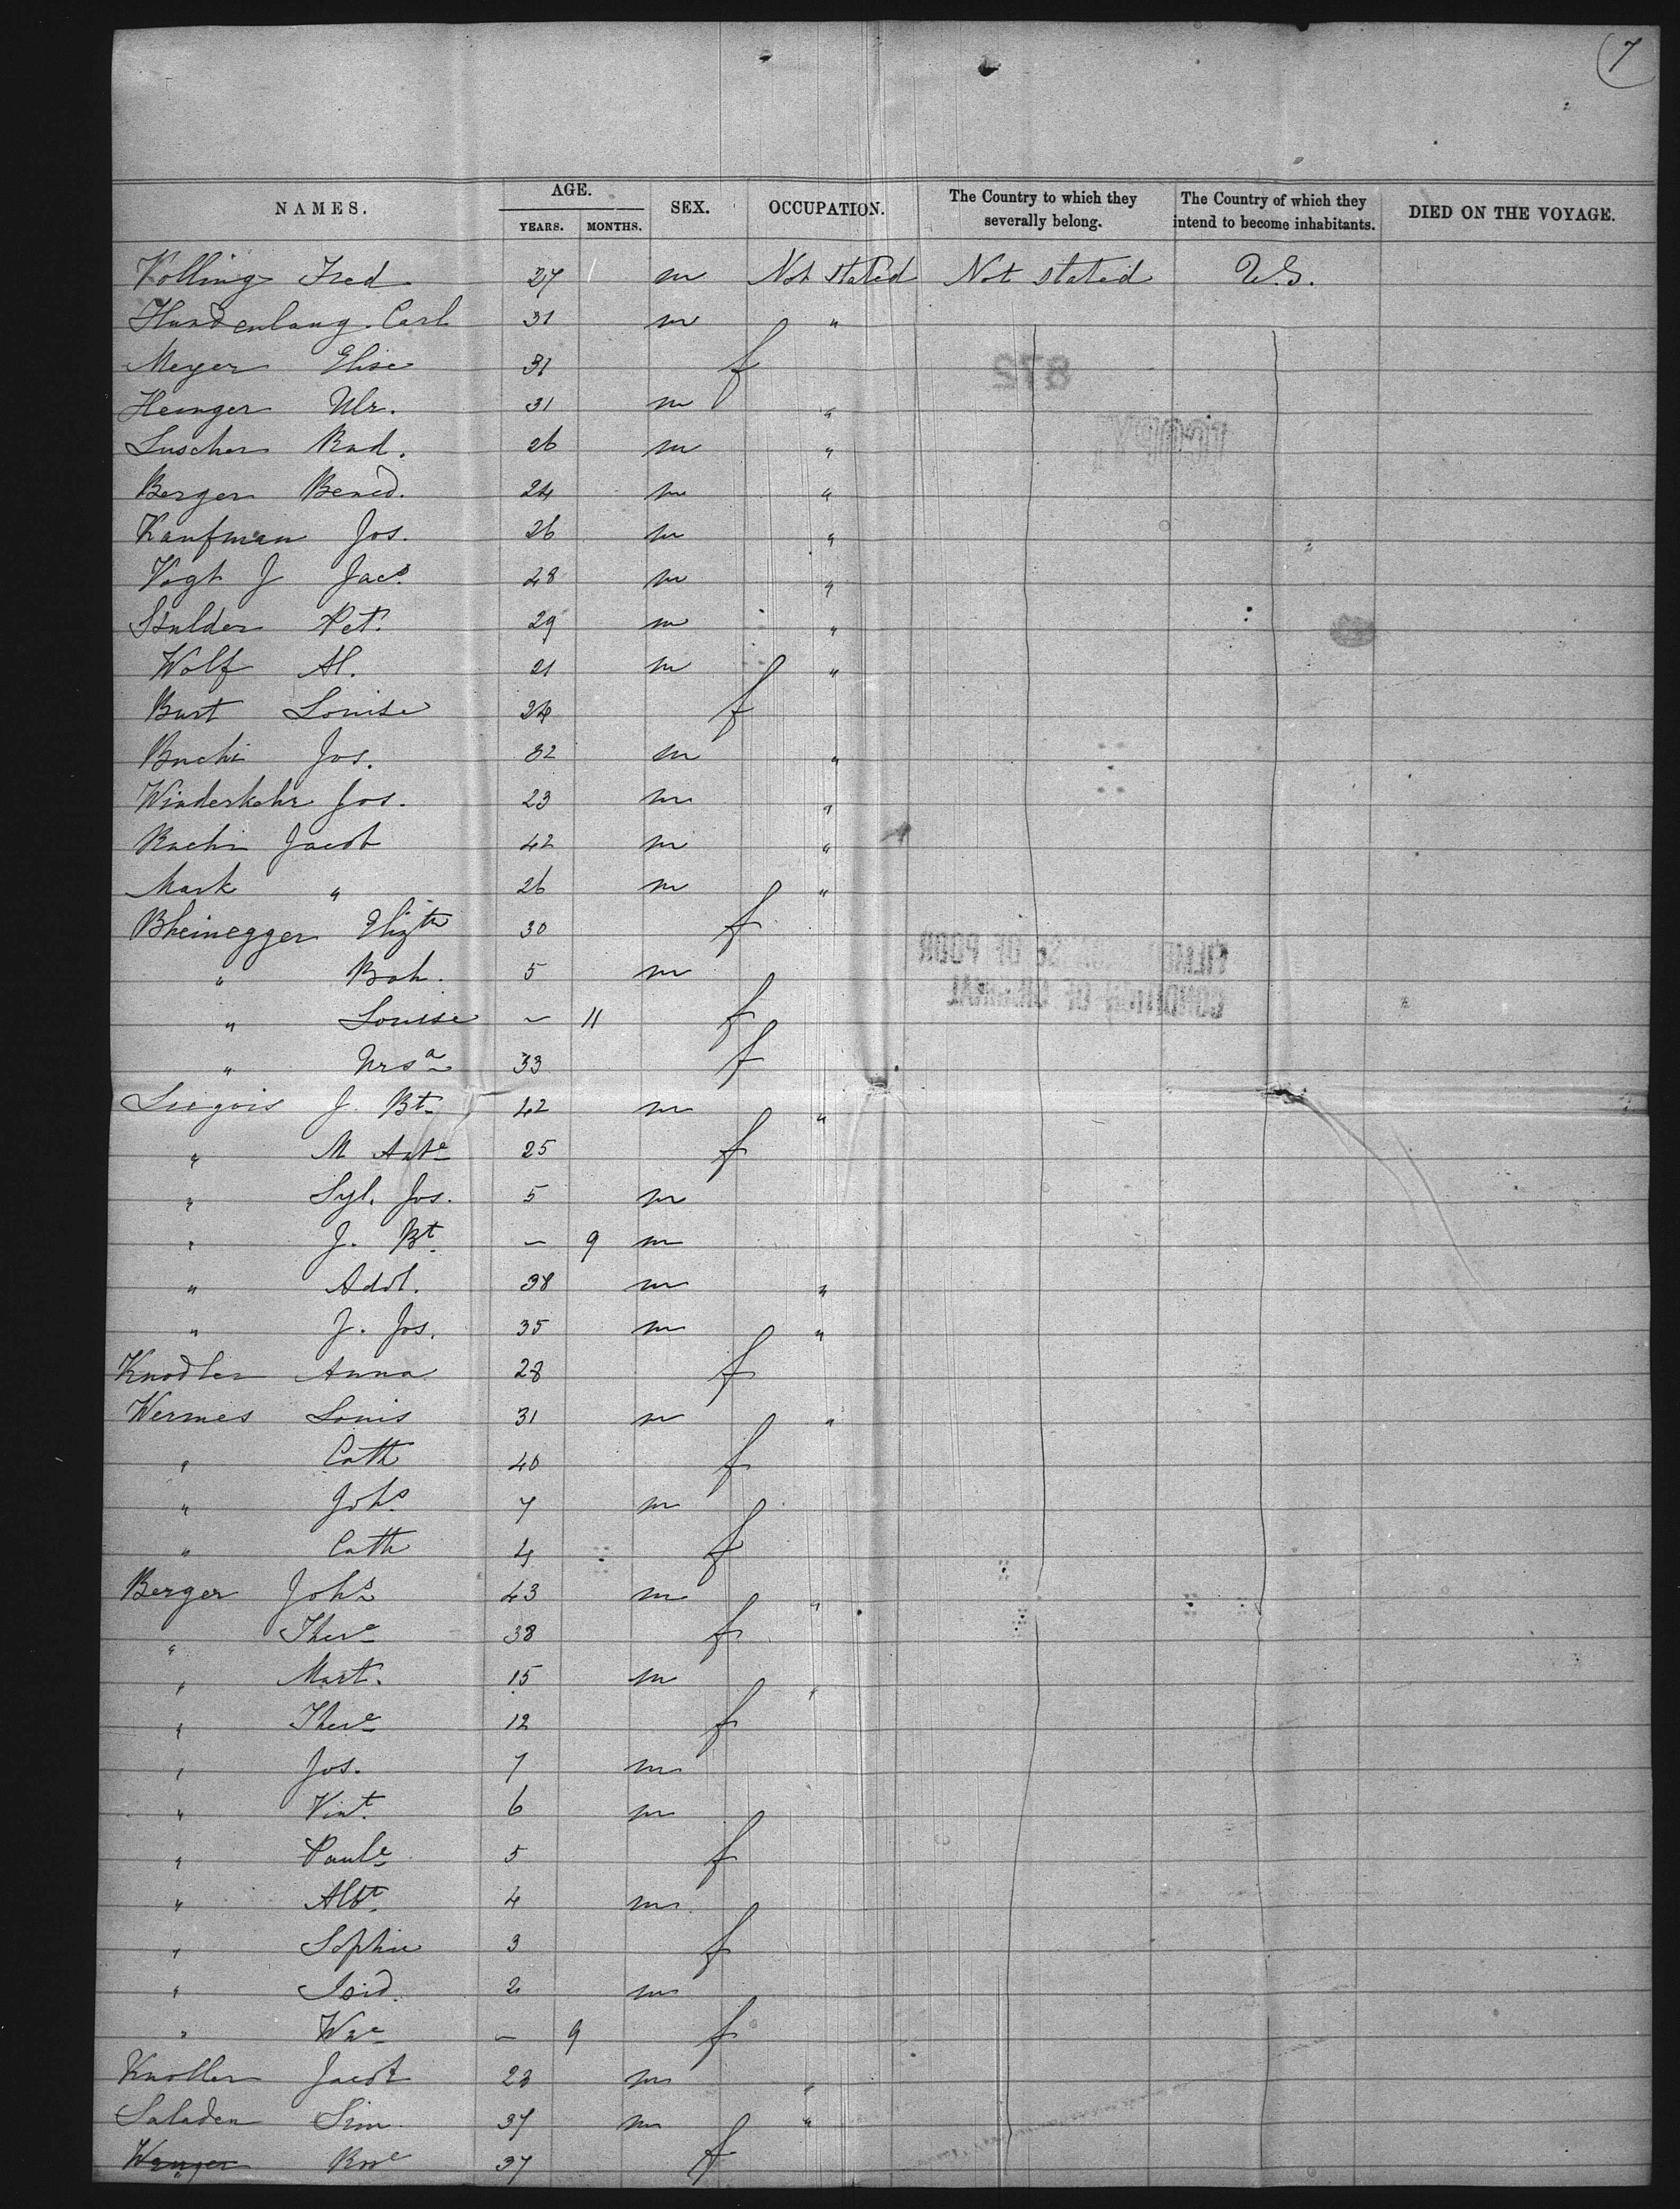 7
NAMES. AGE. YEARS. MONTHS. SEX. OCCUPATION. The Country to which they severally belong. The Country of which they intend to become inhabitants. DIED ON THE VOYAGE.
Kolling Fred 27 m Not stated Not stated U.S.
Hundenlang Carl 31 m "
Meyer Elise 31 f
Heinger Ulr. 31 m "
Luscher Rud. 26 m "
Berger Bened. 24 m "
Kaufman Jos. 26 m "
Vogt J Jac. 28 m "
Stulder Pet. 29 m "
Wolf Al. 21 m "
Burt Louise 24 f
Buchi Jos. 32 m "
Winderkehr Jos. 23 m "
Ruchi Jacob 42 m "
Mark " 26 m "
Rheinegger Elizth 30 f
" Bah. 5 m
" Louise – 11 f
" Ursa 33 f
Liegois J. Bt. 42 m "
" M Ante 25 f
" Syl. Jos. 5 m
" J. Bt. – 9 m
" Adol. 38 m "
" J. Jos. 35 m "
Knodler Anna 28 f
Wermes Louis 31 m "
" Cath 40 f
" Johs 7 m
" Cath 4 f
Berger Johs 43 m "
" There 38 f
" Mart. 15 m "
" There 12 f
" Jos. 7 m
" Vint. 6 m
" Paule 5 f
" Albt. 4 m
" Sophie 3 f
" Isid. 2 m
" – 9 f
Knoller Jacob 23 m "
Saladen Sim. 37 m "
Wenger 37 f